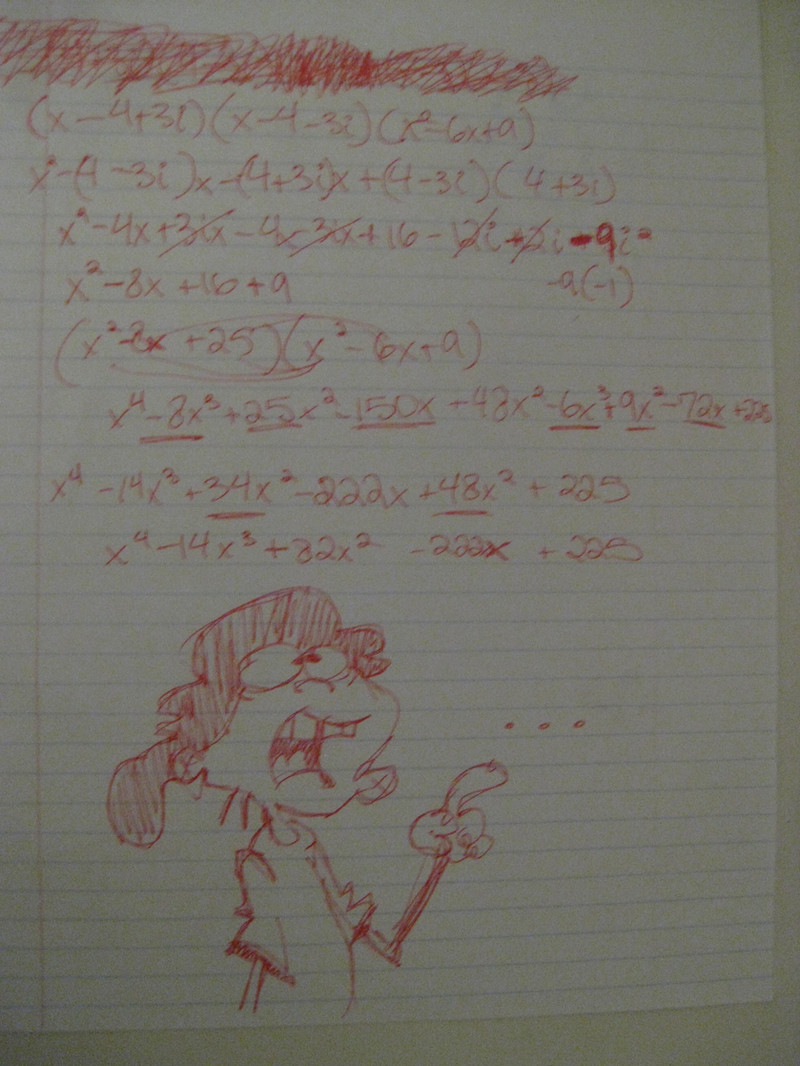 (x-4+3i)(x-4-3i)(x²-6x+9)
x²-(4-3i)x-(4+3i)x+(4-3i)(4+3i)
x²-4x+3ix-4x-3ix+16-12i+12i-9i²
x²-8x+16+9 -9(-1)
(x²-8x+25)(x²-6x+9)
x⁴-8x³+25x²-150x+48x²-6x³+9x²-72x+225
x⁴-14x³+34x²-222x+48x²+225
x⁴-14x³+82x²-222x+225
...